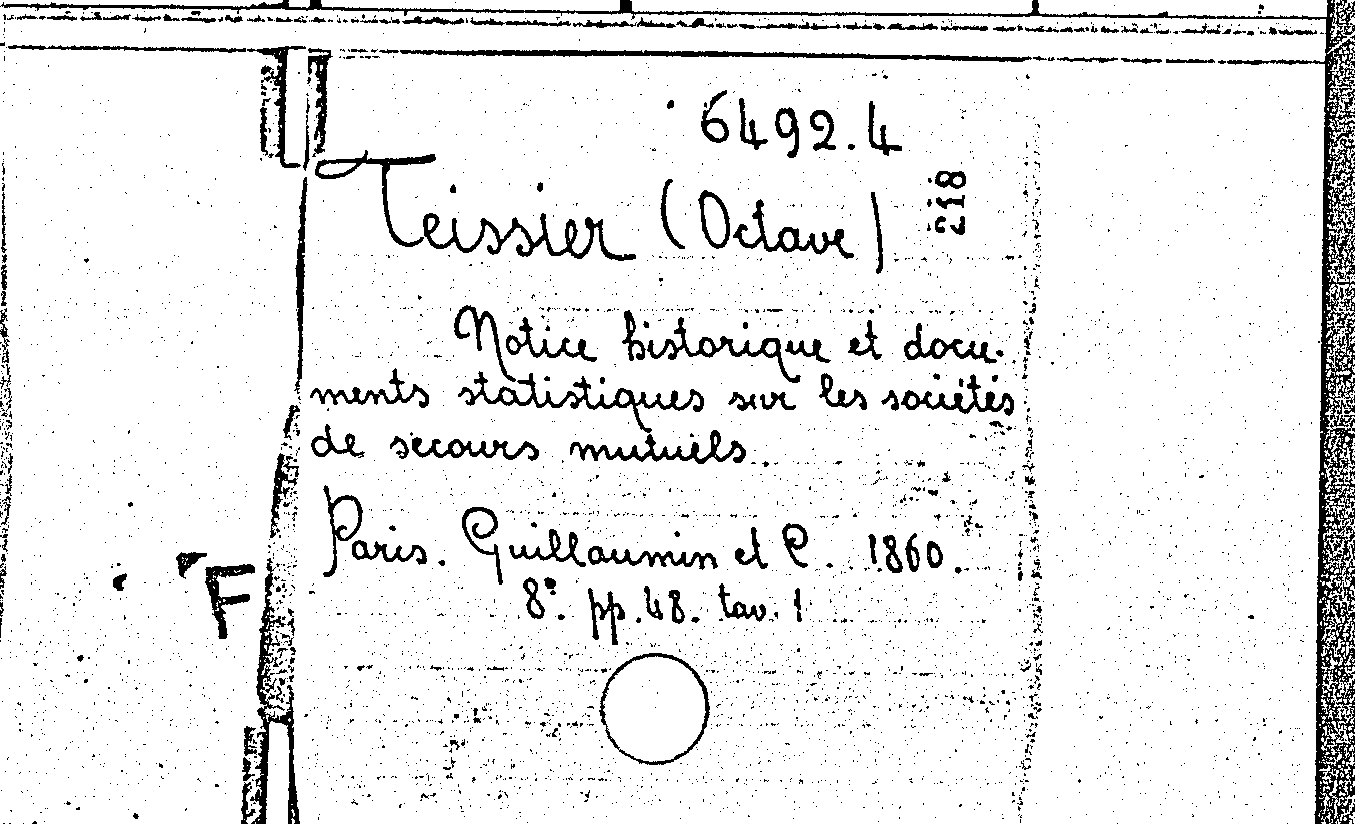 6492.4
218
Teissier (Octave)
Notice historique et docu-
ments statistiques sur les sociétés
de secours mutuels.
Paris. Guillaumin et C. 1860.
8°. pp. 48. tav. 1
F